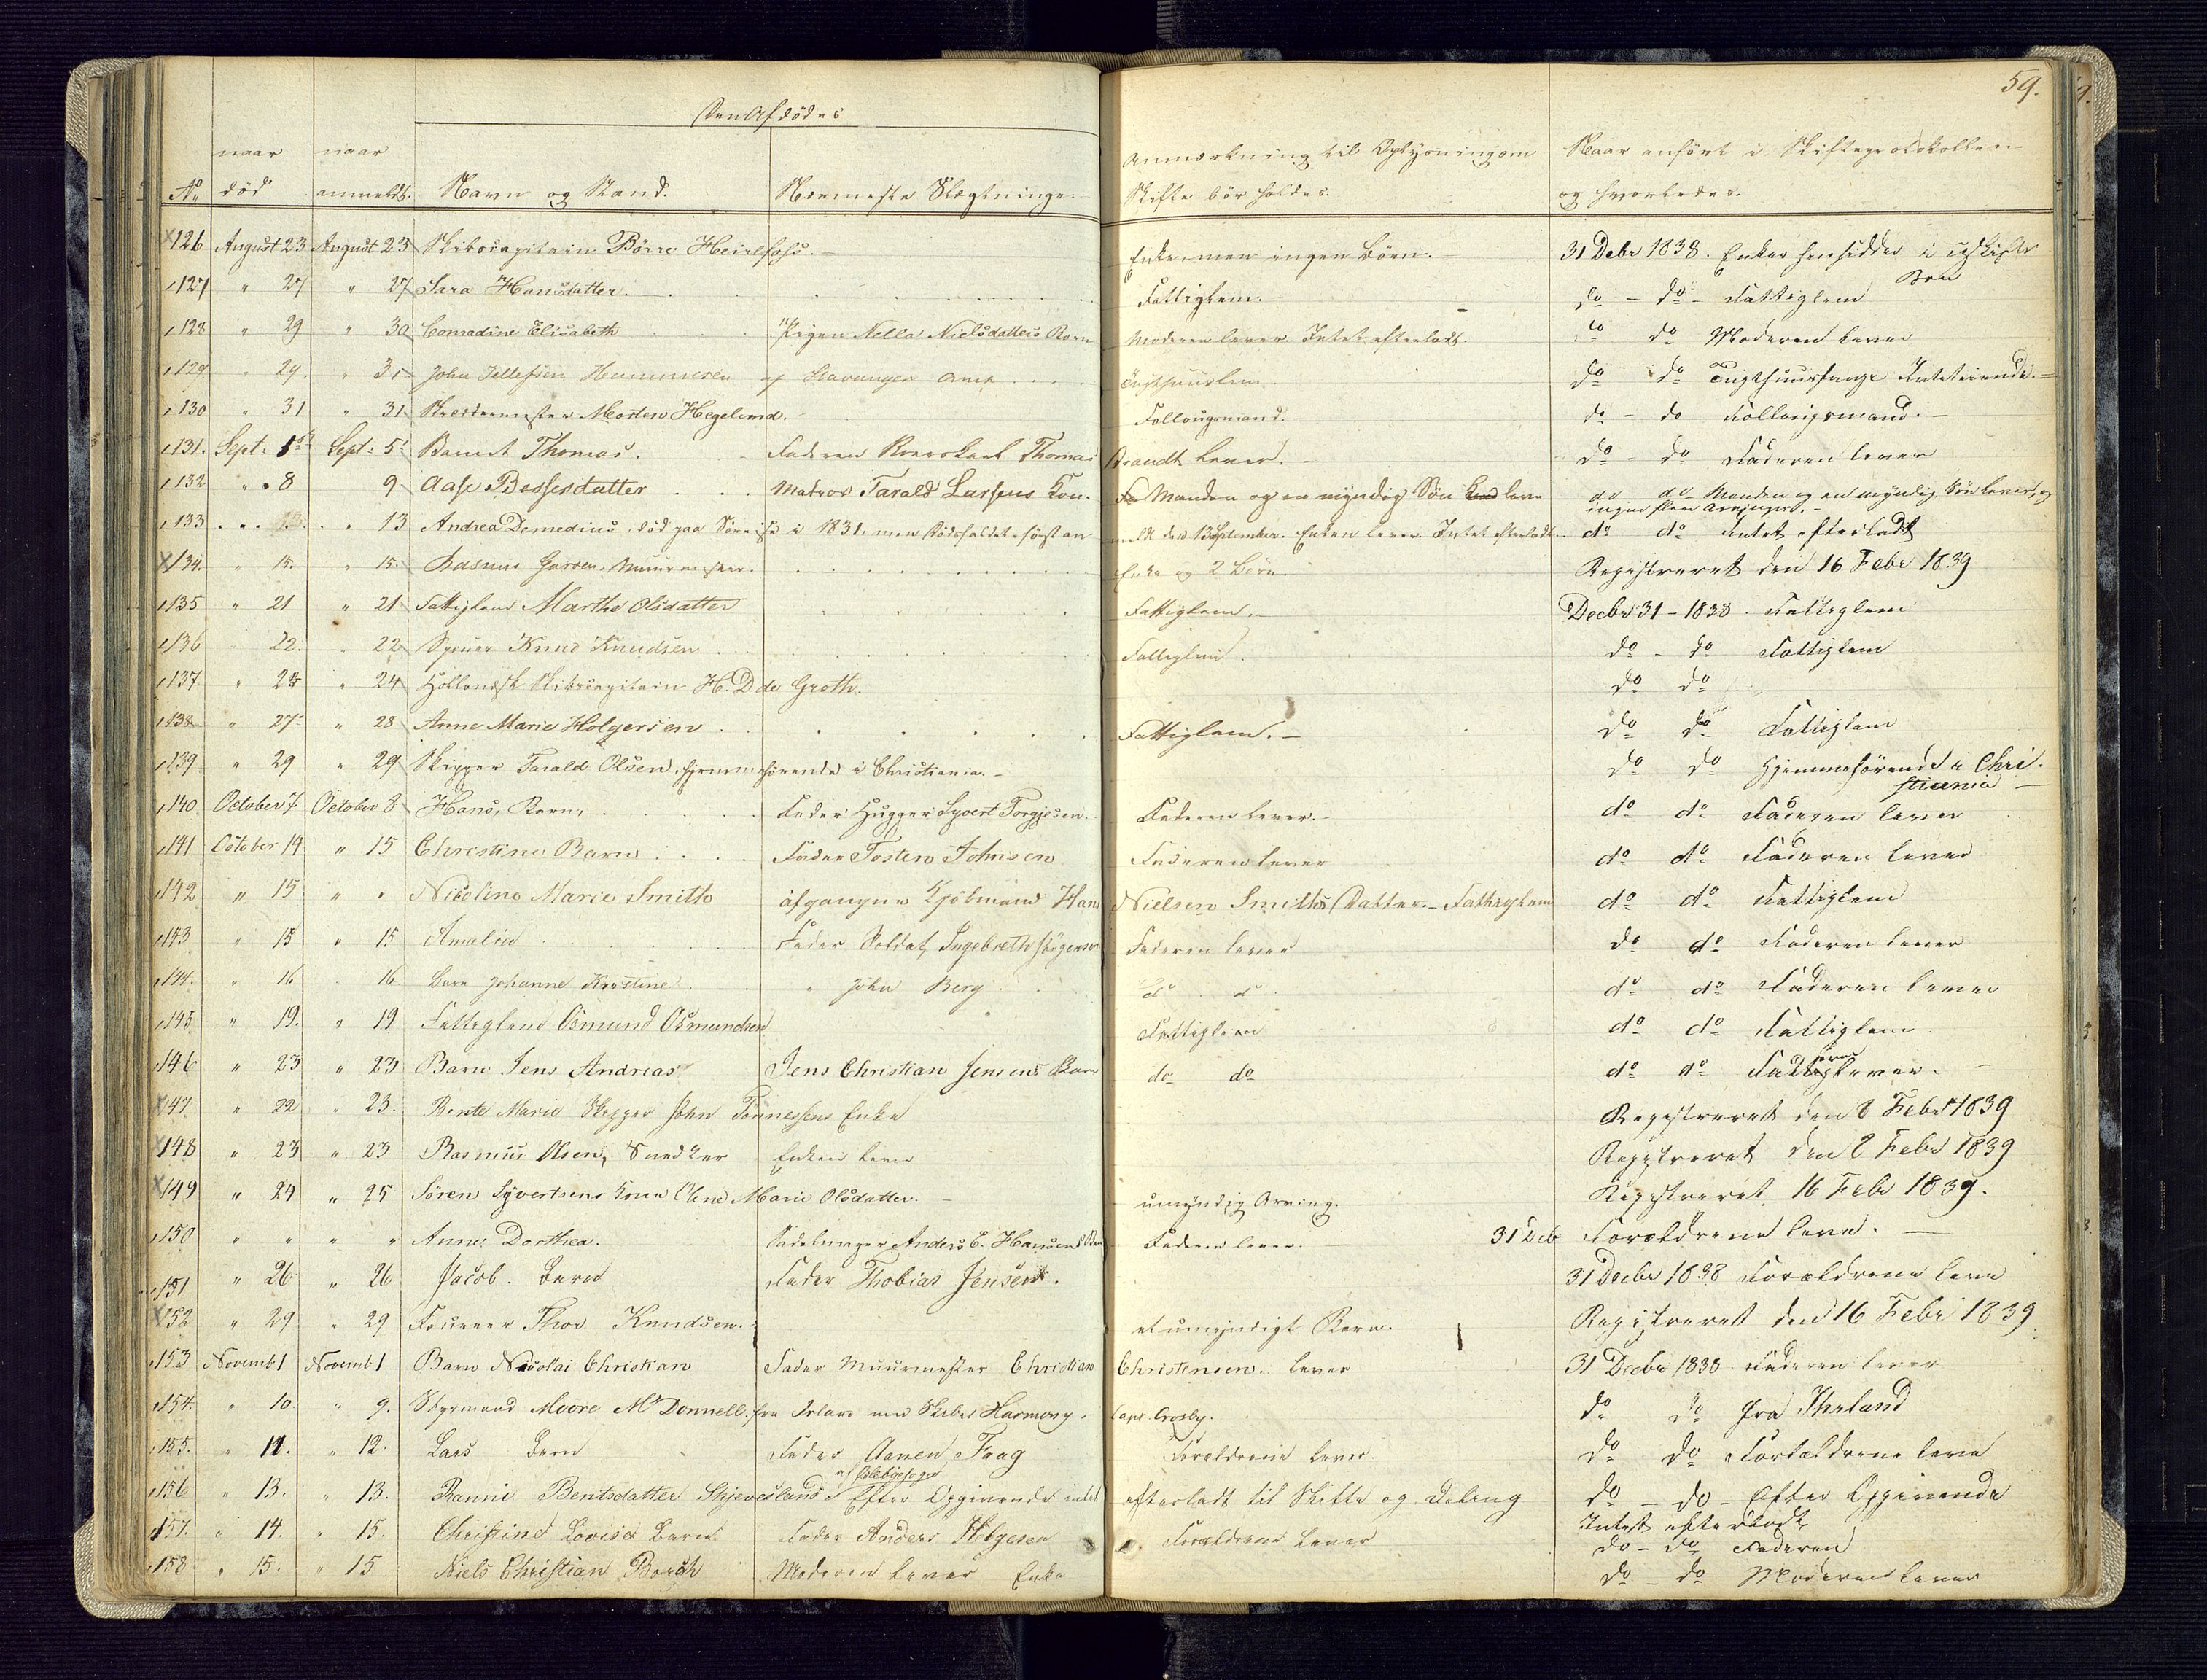 59.
Den Afdødes
No naar død naar anmeldt. Navn og Stand. Nærmeste Slægtninge. Anmærkning til Oplysning om Skifte bör holdes. Naar anfört i Skifteprotokollen og hvorledes.
126 August 23 August 23 Skibscapitain Börre Enke, men ingen Börn. 31 Decbr 1838. Enken hensidder i uskiftet Boe
127 " 27 " 27 Sara Hansdatter. Fattiglem. do - do - Fattiglem
128 " 29 " 30 Conradine Elisabeth Pigen Nella Nielsdatters Barn Moderen lever. Intet efterladt. do do Moderen lever
129 " 29. " 31 John Tellefsen af Stavanger Amt Tugthuuslem do do Tugthuusfange Inteteiende.
130 " 31 " 31 Morten Hegelund. Follougsmand. do - do Follougsmand.
131. Sept: 5 Sept: 5 Barnet Thomas. Faderen Thomas Brandt lever. do - do Faderen lever
132 " 8 9 Aase Bessesdatter Matros Tarald Larsens Kone. Manden og en myndig Sön leve do do Manden og en myndig Sön lever, og ingen flere Arvinger.
133 " 13 " 13 Andrea Demedius, död paa Söreise i 1831, men Dödsfaldet först anmeldt den 13 September. Enken lever. Intet efterladt. do do Intet efterladt
134. " 15. " 15. Rasmus Muurmester. Enke og 2 Börn. Registreret den 16 Febr 1839
135 " 21 " 21 Fattiglem Marthe Olsdatter Fattiglem. Decbr 31 - 1838. Fattiglem
136 22. 22 Knud Knudsen Fattiglem. do - do Fattiglem
137. " 24 " 24 Hollandsk Skibscapitain H. D de Groth. do do
138 " 27 " 28 Anne Marie Holgersen Fattiglem. do do Fattiglem
139 " 29 " 29 Skipper Tarald Olsen, hjemmehörende i Christiania. do do Hjemmehörende i Christiania
140 October 7. October 8 Hans, Barn, Fader Hugger Syvert Torgjesen. Faderen lever. do do Faderen lever
141 October 14 " 15 Christine Barn Fader Tosten Johnsen Faderen lever do do Faderen lever
142 " 15 " " Nicoline Marie Smith afgangne Kjöbmand Hans Nielsen Smiths Datter. - Fattiglem do do Fattiglem
143 " 15 " 15 Amalia Fader Soldat Ingebreth Jörgensen Faderen lever do do Faderen lever
144. " 16 16 Barn Johanne Kristine " John Berg do do do do Faderen lever
145 " 19. " 19 Fattiglem Osmund Osmundsen Fattiglem do do Fattiglem
146 " 23 " 23 Barn Jens Andreas Jens Christian Jensens Barn do do do do Faderen lever.
147. " 22 " 23. Bente Marie Skipper John Tönnesens Enke Registreret den 8 Febr 1839
148 " 23 " 23 Rasmus Olsen, Snedker Enken lever Registreret den 8 Febr 1839
149 " 24 " 25 Sören Syvertsens Kone Olene Marie Olsdatter. umyndig Arving. Registreret 16 Febr 1839.
150 " " " " Anne Dorthea. Sadelmager Anders C. Hansens Barn Faderen lever. 31 Decb Forældrene leve.
151 " 26 " 26 Jacob. Barn Fader Thobias Jensen. 31 Decbr 1838 Forældrene leve
152 " 29 " 29 Thor Knudsen. et umyndigt Barn. Registreret den 16 Febr 1839
153 Novemb 1 Novemb 1 Barn Nicolai Christian Fader Muurmester Christian Christensen. lever 31 Decbr 1838 Faderen lever
154. " 10. " 9. Styrmand Moore McDonnell. fra Irland med Skibet Harmony. Capt. Crosby. do do fra Ihrland
155. " 11. " 12. Lars Barn Fader Aanen Faag Forældrene lever. do do Forældrene leve
156 " 13. " 13. Ranni Bentsdatter Efter Opgivende intet efterladt til Skifte og Deling do - do - Efter Opgivende Intet efterladt
157. " 14. " 15. Christine Lovise Barn Fader Anders Forældrene lever do - do Faderen
158 " 15. " 15 Niels Christian Borch Moderen lever Enke do - do Moderen lever